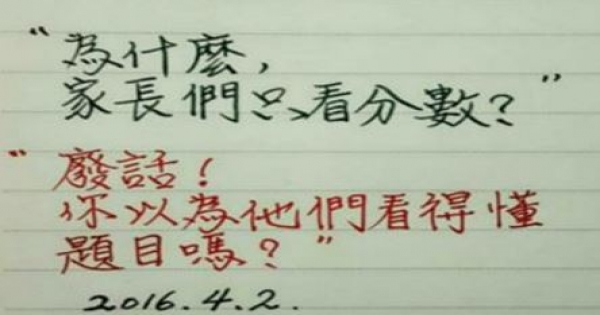 “為什麼,
家長們只看分數?”
“廢話!
你以為他們看得懂
題目嗎?”
2016.4.2.